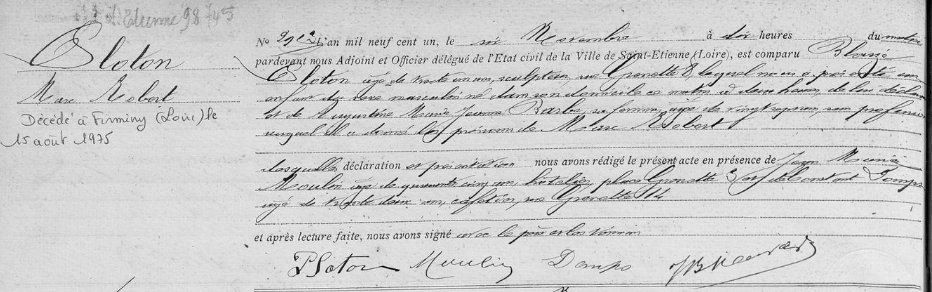 Ploton
Marc Robert
Décédé à Firminy (Loire) le
15 août 1975
No L'an mil neuf cent un, le six Novembre à dix heures du matin
pardevant nous Adjoint et Officier délégué de l'Etat civil de la Ville de Saint-Etienne (Loire), est comparu
Ploton âgé de trente un ans, sculpteur rue Grenette 8, lequel nous a présenté un
enfant du sexe masculin né dans son domicile ce matin à deux heures, de lui déclarant
et de Augustine Marie Jeanne sa femme, âgée de vingt trois ans, sans profession
auquel il a donné les prénoms de Marc Robert
lesquelles déclaration et présentation nous avons rédigé le présent acte en présence de Jean Marie
Moulin âgé de quarante cinq ans, place Grenette et de
âgé de trente deux ans, cafetier, rue Grenette 14
et après lecture faite, nous avons signé avec le père et les témoins
Ploton Moulin